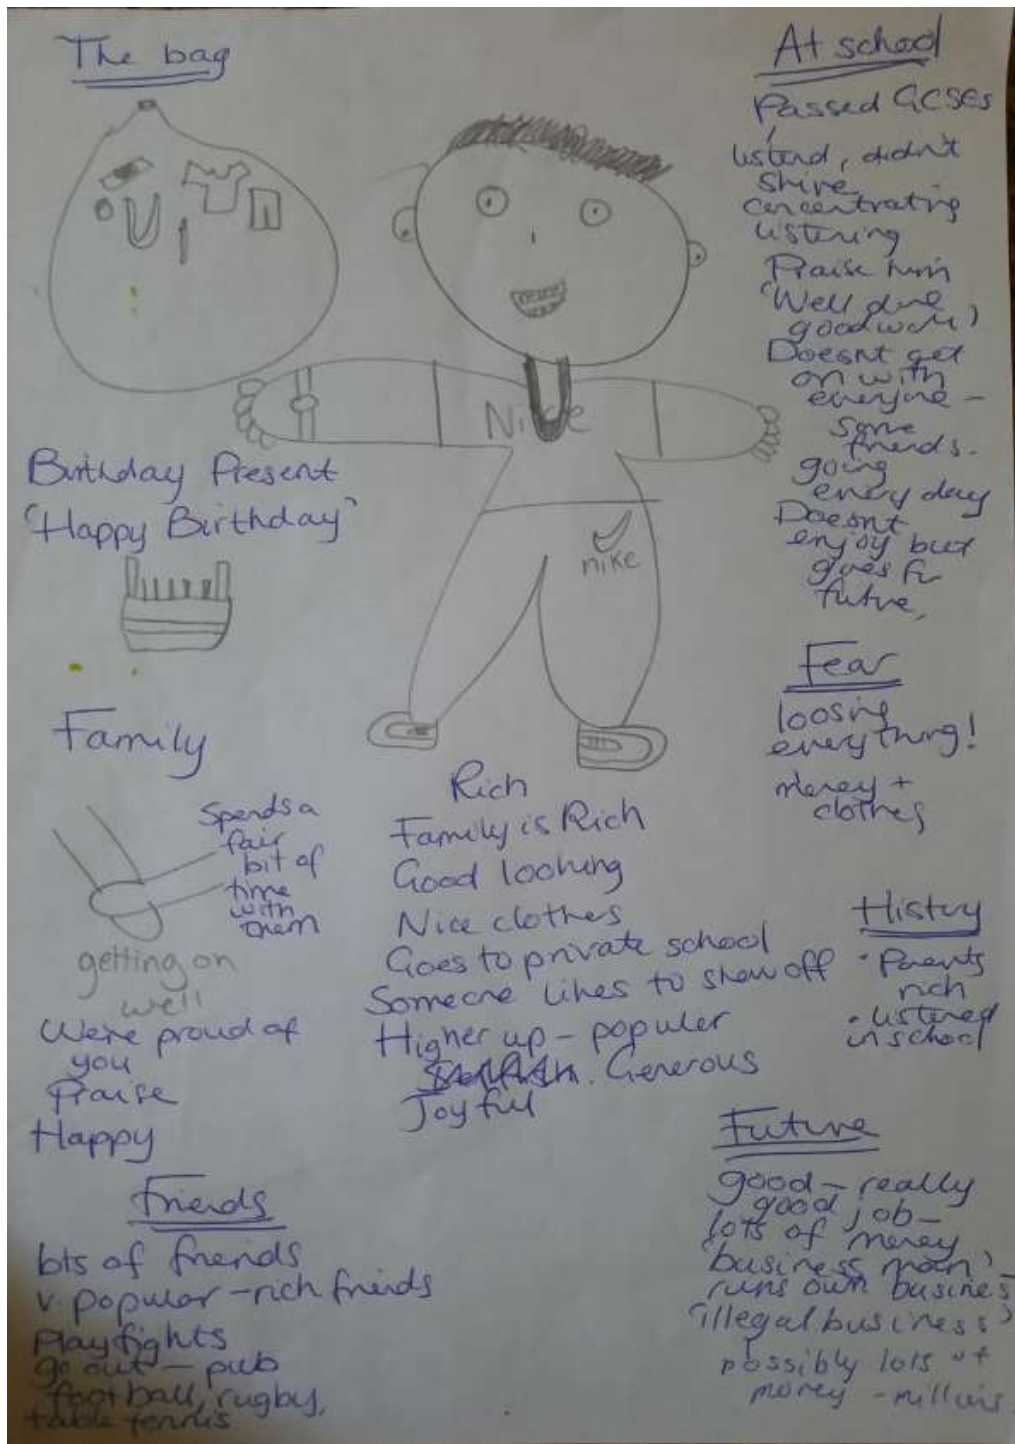 The bag
Nike
Birthday Present
'Happy Birthday'
nike
Family
Spends a
fair
bit of
time
with
them
getting on
well
We're proud of
you
Praise
Happy
Friends
lots of friends
v. popular - rich friends
Playfights
go out - pub
football, rugby,
table tennis
Rich
Family is Rich
Good looking
Nice clothes
Goes to private school
Someone likes to show off
Higher up - populer
Generous
Joyful
At school
Passed GCSEs
listend, didn't
skive
concentrating
listening
Praise him
'Well done
good work'
Doesnt get
on with
everyone -
some
friends.
going
every day
Doesnt
enjoy but
goes for
future,
Fear
loosing
everything!
money +
clothes
History
• Parents
rich
• listened
in school
Future
good - really
good job -
lots of money
'business man' -
runs own busines
'illegal business'
possibly lots of
money - millions